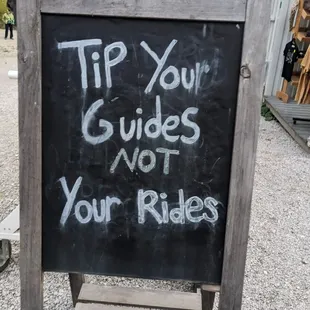 TiP Your
Guides
NOT
Your Rides